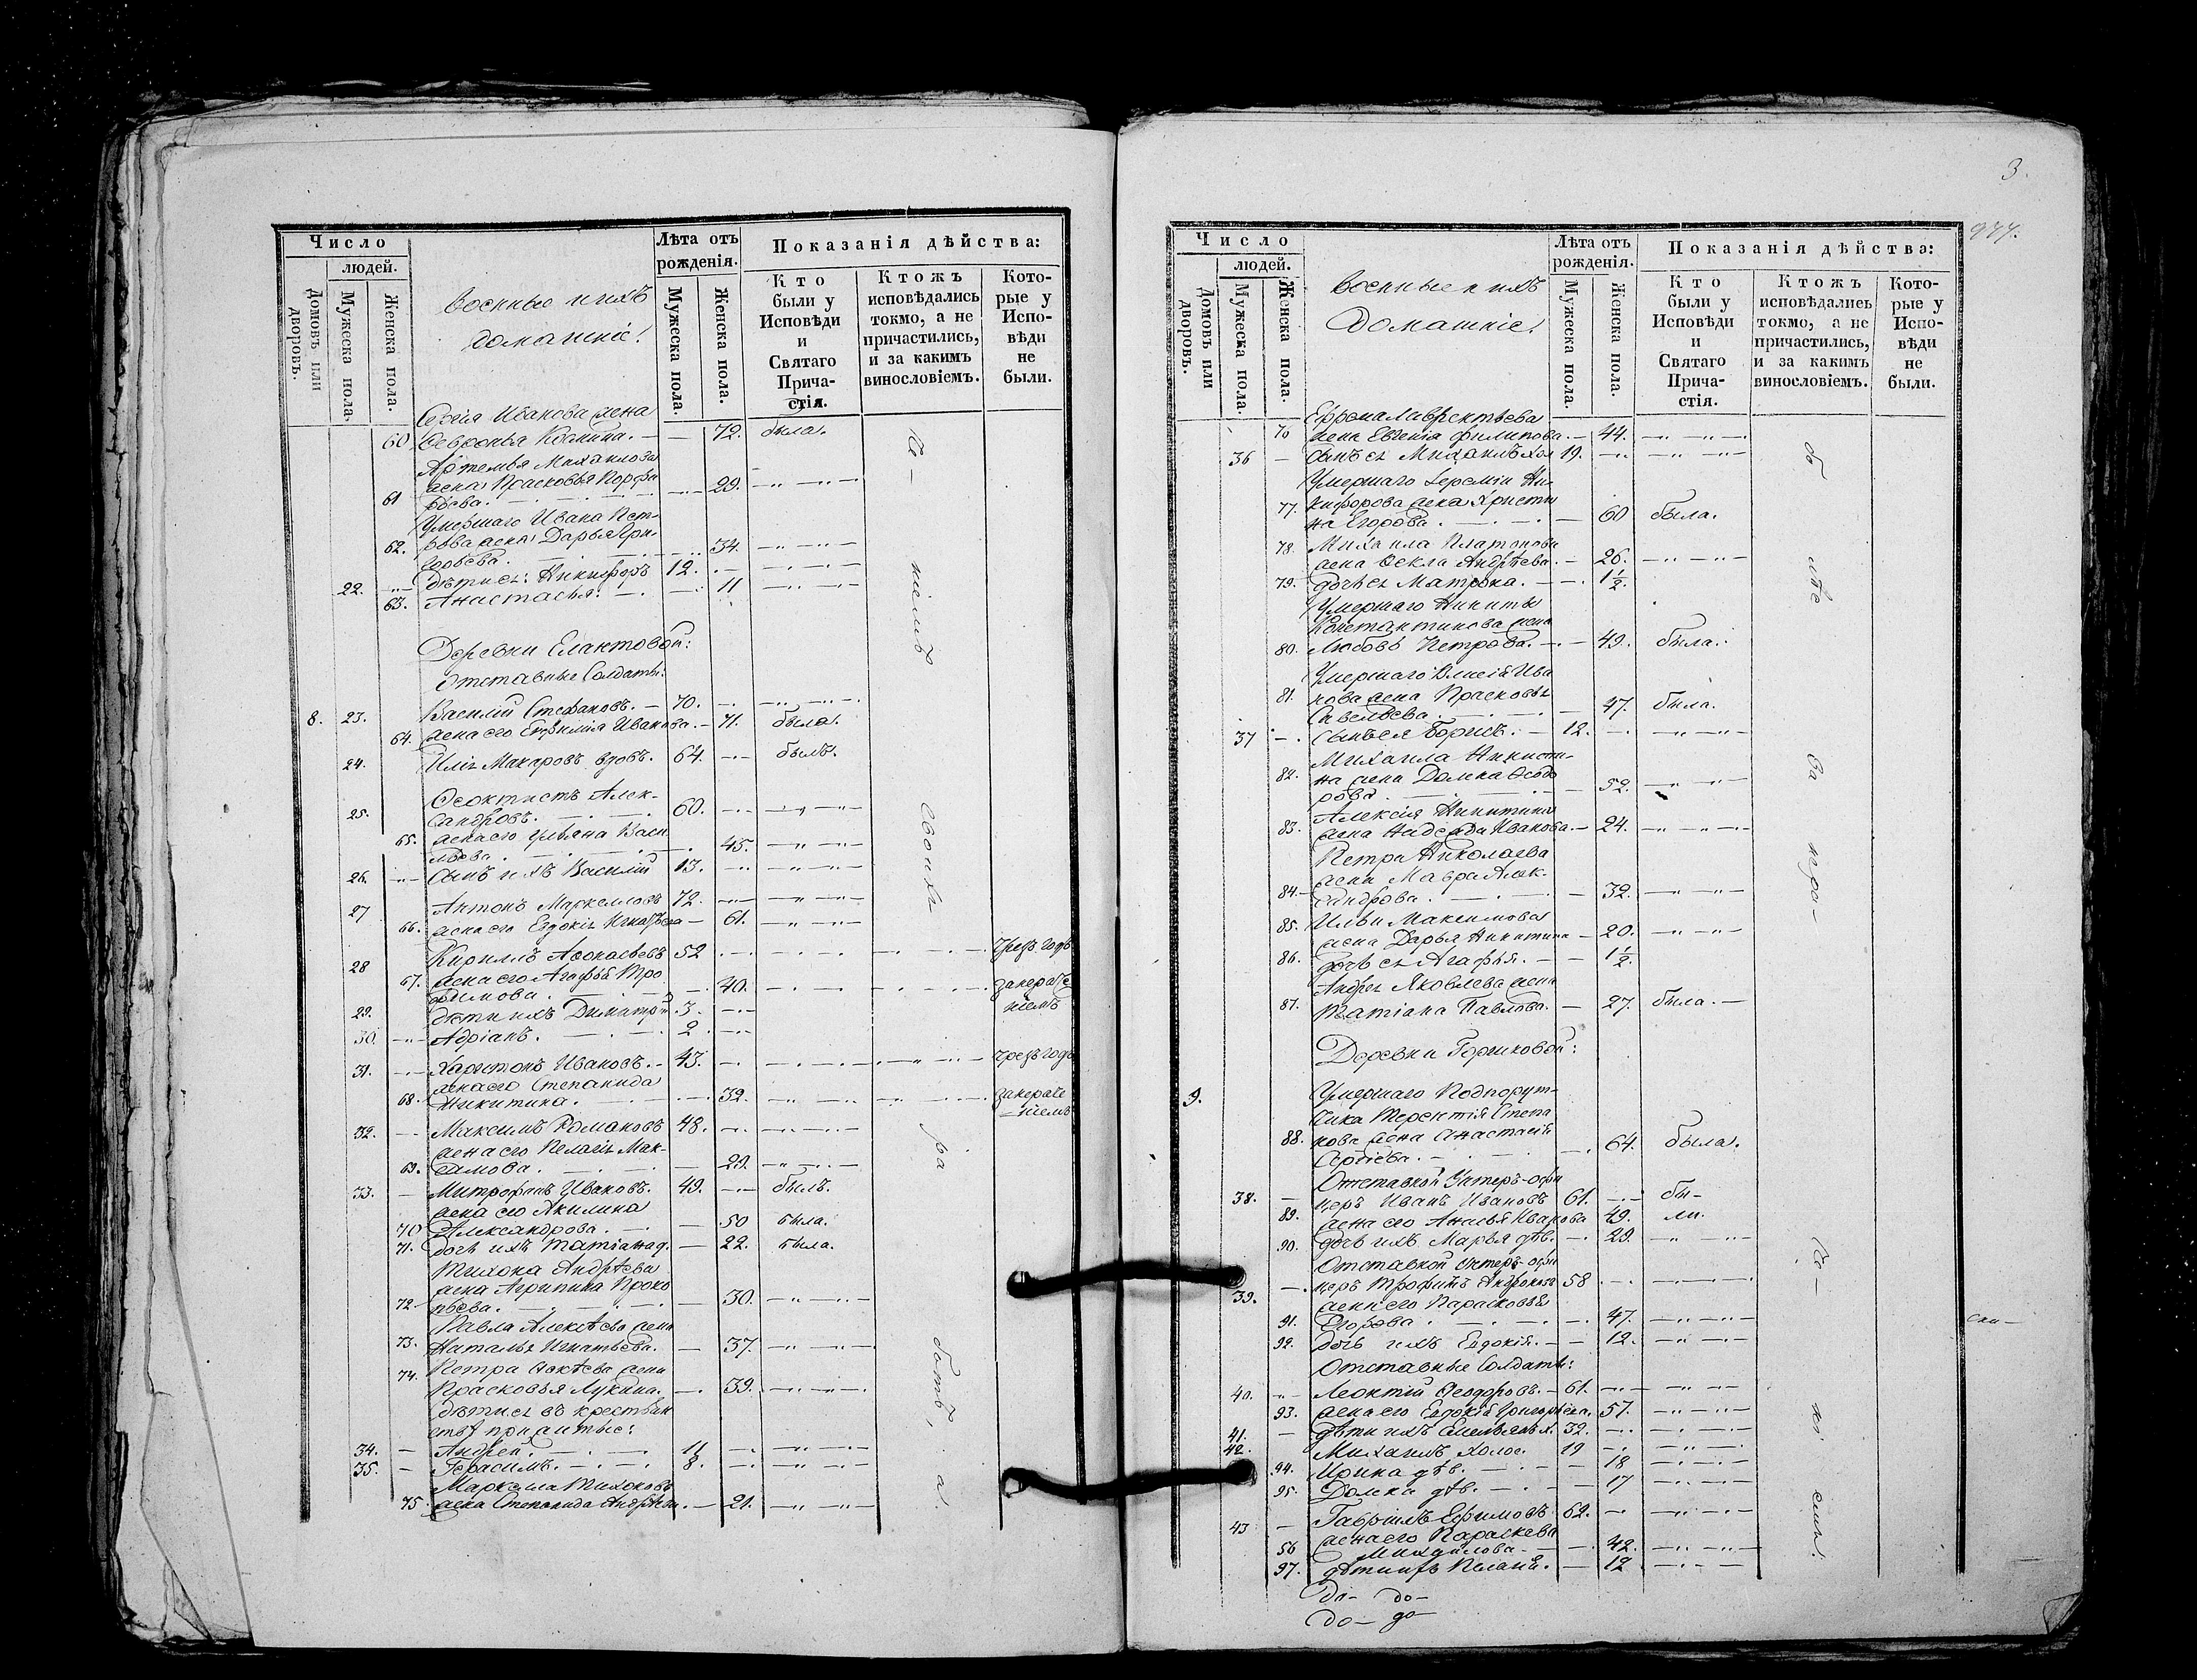 Число
людей.
Домовъ или дворовъ.
Мужеска пола.
Женска пола.
военные и ихъ
домашніе.
Лѣта отъ
рожденія.
Мужеска пола.
Женска пола.
Показанія дѣйства:
Кто
были у
Исповѣди
и
Святаго
Прича-
стія.
Ктожъ
исповѣдались
токмо, а не
причастились,
и за какимъ
винословіемъ.
Кото-
рые у
Испо-
вѣди
не
были.
Иванова жена
60 72. была.
Артемья Михаилова
жена Прасковья Порфи
61 рьева. 29.
Умершаго Ивана Пет-
62. рова жена Дарья Гри-
горьева. 34.
22. дѣти ея: Никифоръ 12.
63. Анастасья. 11
Деревни Елактовой:
Отставные Солдаты:
8. 23. Василій Стефановъ. 70.
64. жена его Евфимія Иванова. 71. была.
24. Илія Макаровъ вдовъ. 64. былъ.
25. Ѳеоктистъ Алек-
сандровъ. 60.
65. жена его Ульяна Васи
льева. 45.
26. сынъ ихъ Василій 13.
27 Антонъ Маркелловъ 72.
66. жена его Евдокія Игнатьева 61.
28 Кириллъ Аѳонасьевъ 52 чрезъ годъ
67. жена его Агафья Тро
фимова. 40.
29. дѣти ихъ Димитрій 3.
30. Адріанъ. 2.
31. Харитонъ Ивановъ. 43. чрезъ годъ
жена его Степанида
68. Никитина. 32.
32. Максимъ Романовъ 48.
жена его Пелагія Мак-
69. симова. 29.
33. Митрофанъ Ивановъ. 49. былъ.
жена его Акилина
70 Александрова. 50 была.
71. дочь ихъ Татіана д. 22. была.
Тихона Андрѣева
жена Агрипина Проко
72 пьева. 30.
Павла Алексѣева жена
73. Наталья Игнатьева. 37.
74. Петра жена
Прасковья Лукина. 39.
дѣти ея въ крестьян
ствѣ прижитые:
34. Андрей. 11
35. Герасимъ. 8.
Маркела Тихонова
75 жена Степанида Андрѣева. 21.
3.
Число
людей.
Домовъ или дворовъ.
Мужеска пола.
Женска пола.
военные и ихъ
домашніе.
Лѣта отъ
рожденія.
Мужеска пола.
Женска пола.
Показанія дѣйства:
Кто
были у
Исповѣди
и
Святаго
Прича-
стія.
Ктожъ
исповѣдались
токмо, а не
причастились,
и за какимъ
винословіемъ.
Кото-
рые у
Испо-
вѣди
не
были.
Ефрема Лаврентьева
76 жена Евгенія Филипова. 44.
36 сынъ ея Михаилъ хол 19.
Умершаго Іереміи Ни-
77. кифорова жена Христи
на Егорова. 60 была.
78. Михаила Платонова
жена Ѳекла Андрѣева. 26.
79. дочь ея Матрона. 1½.
Умершаго Никиты
Константинова жена
80. Любовь Петрова. 49. была.
81. нова жена Прасковья
Савельева. 47. была.
37 сынъ ея Борисъ. 12.
Михаила Никити-
82. на жена Домна Ѳедо
рова. 52.
Алексія Никитина
83. жена Надежда Иванова. 24.
Петра Николаева
жена Мавра Алек-
84. сандрова. 32.
85. Ильи Максимова
жена Дарья Никитина 20.
86. дочь ея Агафья. 1½.
Андрея Яковлева жена
87. Татіана Павлова. 27. была.
Деревни Горшковой:
9. Умершаго Подпорут-
чика Терентія Степа
88. нова жена Анастасія
Сергіева. 64. была.
Отставной Унтеръ-офи
38. церъ Иванъ Ивановъ 61. бы-
89. жена его Анисья Иванова 49. ли.
90. дочь ихъ Марья дѣв. 29.
Отставной Унтеръ-офи
39. церъ Трофимъ Андроновъ 58
жена его Парасковья
91. Егорова. 47.
92. дочь ихъ Евдокія. 12.
Отставные Солдаты:
40. Леонтій Ѳеодоровъ. 61.
93. жена его Евдокія Григорьева. 57.
41. дѣти ихъ 32.
42. Михаилъ холос. 19
94. Ирина дѣв. 18
95. Домна дѣв. 17
43 Гавріилъ Ефимовъ 62.
жена его Параскева
56 Михаилова. 42.
97. 12
До- до-
До- до-